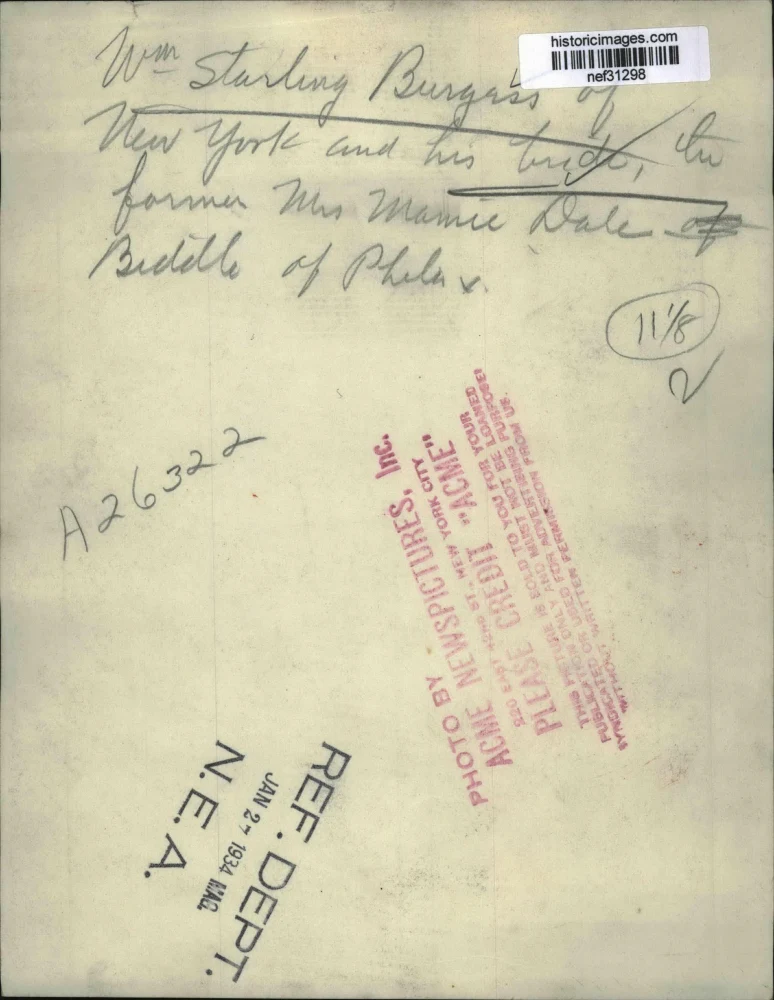 historicimages.com
nef31298
Wm Starling Burgess of
New York and his bride, the
former Mrs Mamie Dale of
Biddle of Phila x.
11 1/8
2
A26322
PHOTO BY
ACME NEWSPICTURES, Inc.
220 EAST 42ND ST., NEW YORK CITY
PLEASE CREDIT "ACME"
THIS PICTURE IS SOLD TO YOU FOR YOUR
PUBLICATION ONLY AND MUST NOT BE LOANED
SYNDICATED OR USED FOR ADVERTISING PURPOSES
WITHOUT WRITTEN PERMISSION FROM US.
REF. DEPT.
JAN 27 1934 MAG.
N.E.A.